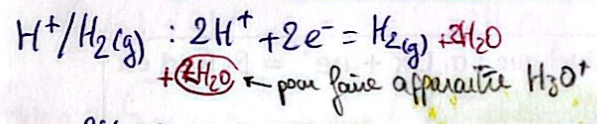 H⁺/H₂(g) : 2H⁺ + 2e⁻ = H₂(g) + 2H₂O
+ 2H₂O ← pour faire apparaître H₃O⁺